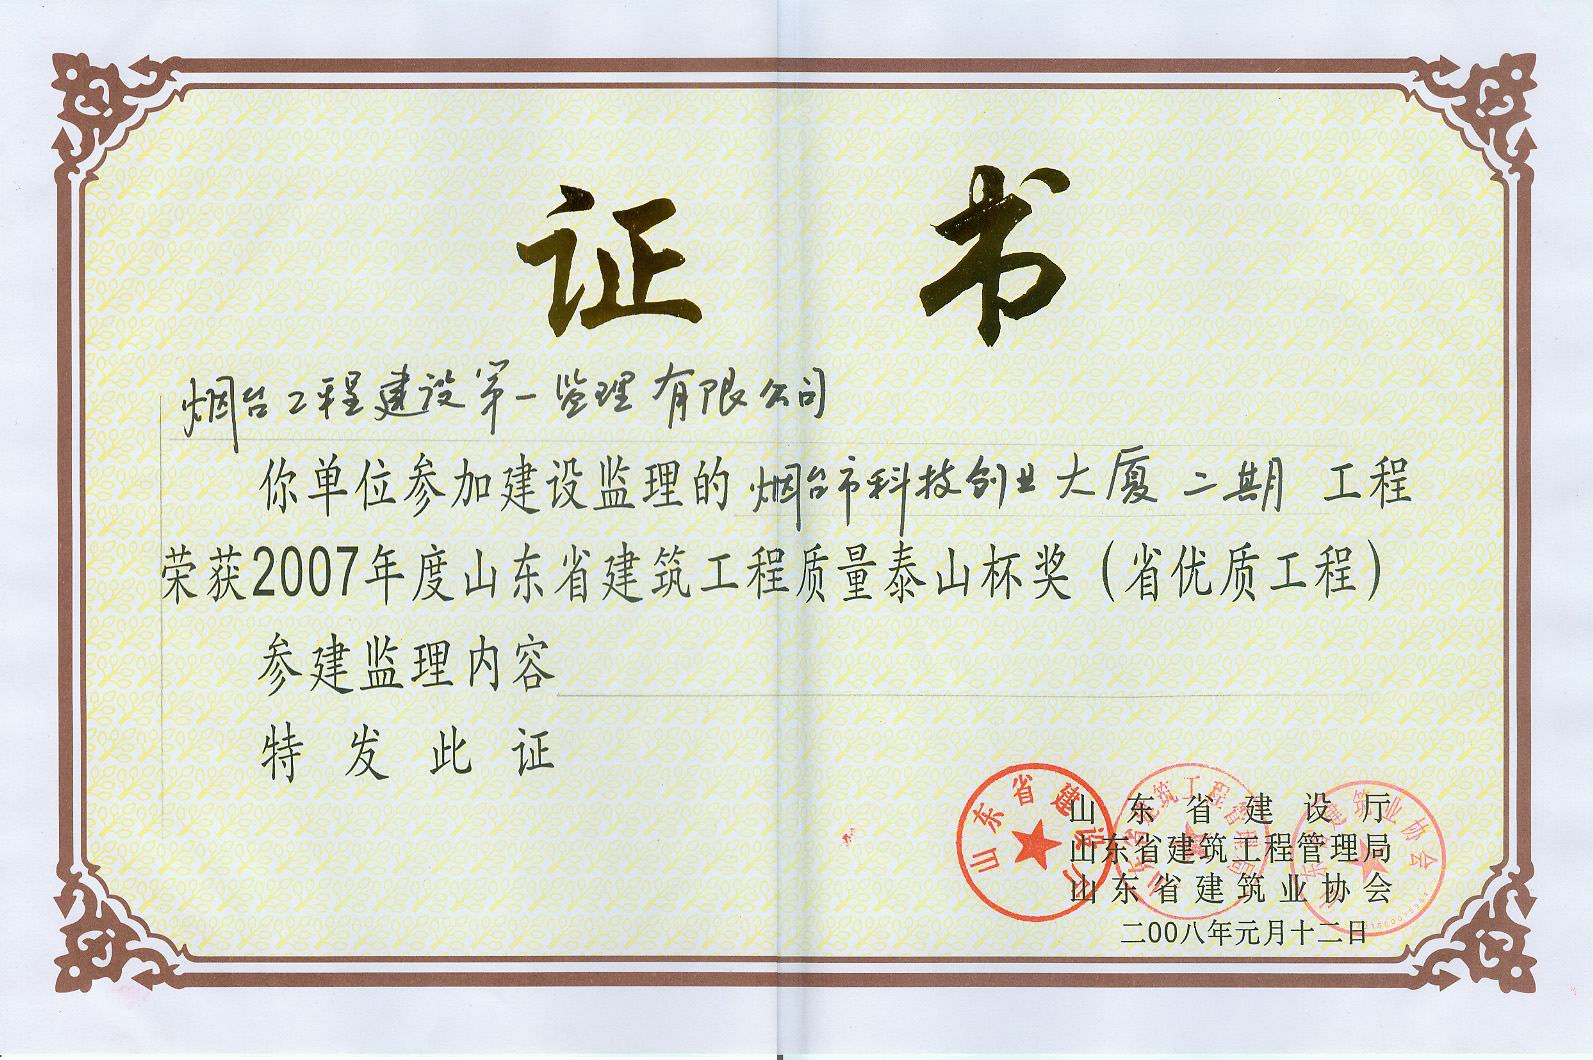 证书
烟台工程建设第一监理有限公司
你单位参加建设监理的烟台市科技创业大厦二期工程
荣获2007年度山东省建筑工程质量泰山杯奖（省优质工程）
参建监理内容
特发此证
山东省建设厅
山东省建筑工程管理局
山东省建筑业协会
二00八年元月十二日
山东省建设厅
山东省建筑工程管理局
山东省建筑业协会